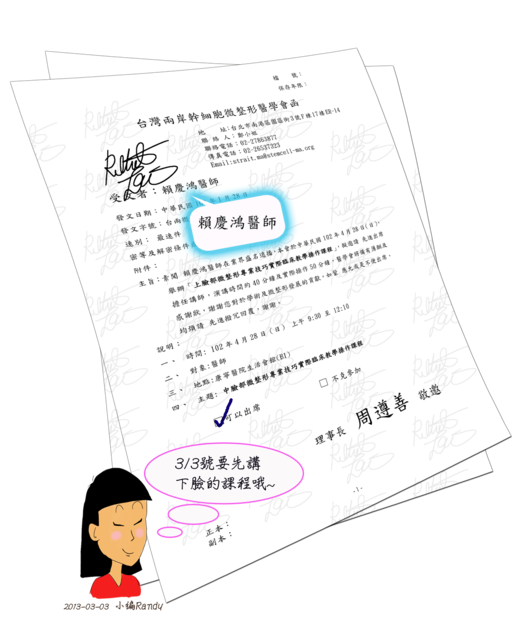 檔　號：
保存年限：
台灣兩岸幹細胞微整形醫學會函
地　址：台北市南港區園區街3號F棟17樓ER-14
聯 絡 人：鄭小姐
聯絡電話：02-27863877
傳真電話：02-26537323
Email:strait.ma@stemcell-ma.org
受文者：賴慶鴻醫師
發文日期：中華民國
發文字號：台兩
速別： 最速件
密等及解密條件
附件：
賴慶鴻醫師
主旨：素聞 賴慶鴻醫師在業界盛名遠播，本會於中華民國102年4月28日(日)，
舉辦「上臉部微整形專業技巧實際臨床教學操作課程」，
擔任講師，演講時間約40分鐘及實際操作50分鐘，
感謝狀，謝謝您對於學術及微整形發展的貢獻，如蒙 應允或是不便出席，
均煩請 先進撥冗回覆，謝謝。
說明：
一、 時間：102年4月28日(日) 上午 9:30 至 12:10
二、 對象:醫師
三、 地點:康寧醫院生活會館(B1)
四、 主題: 中臉部微整形專業技巧實際臨床教學操作課程
□可以出席
□ 不克參加
理事長 周遵善 敬邀
3/3號要先講
下臉的課程哦~
正本：
副本：
-1-
2013-03-03 小編Randy